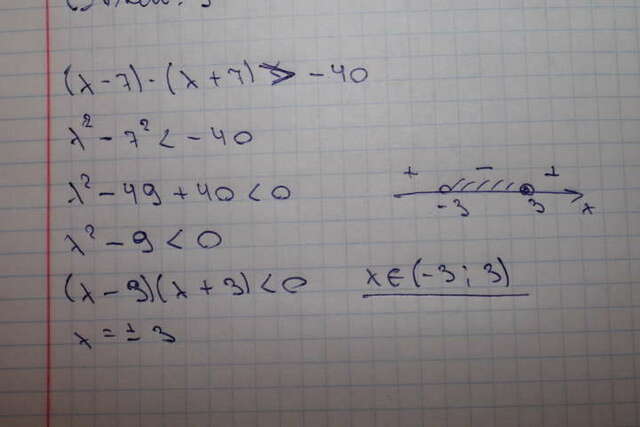 (x-7)·(x+7) > -40
x² - 7² < -40
x² - 49 + 40 < 0
x² - 9 < 0
(x-3)(x+3) < 0
x = ± 3
+ - +
-3 3 x
x ∈ (-3; 3)